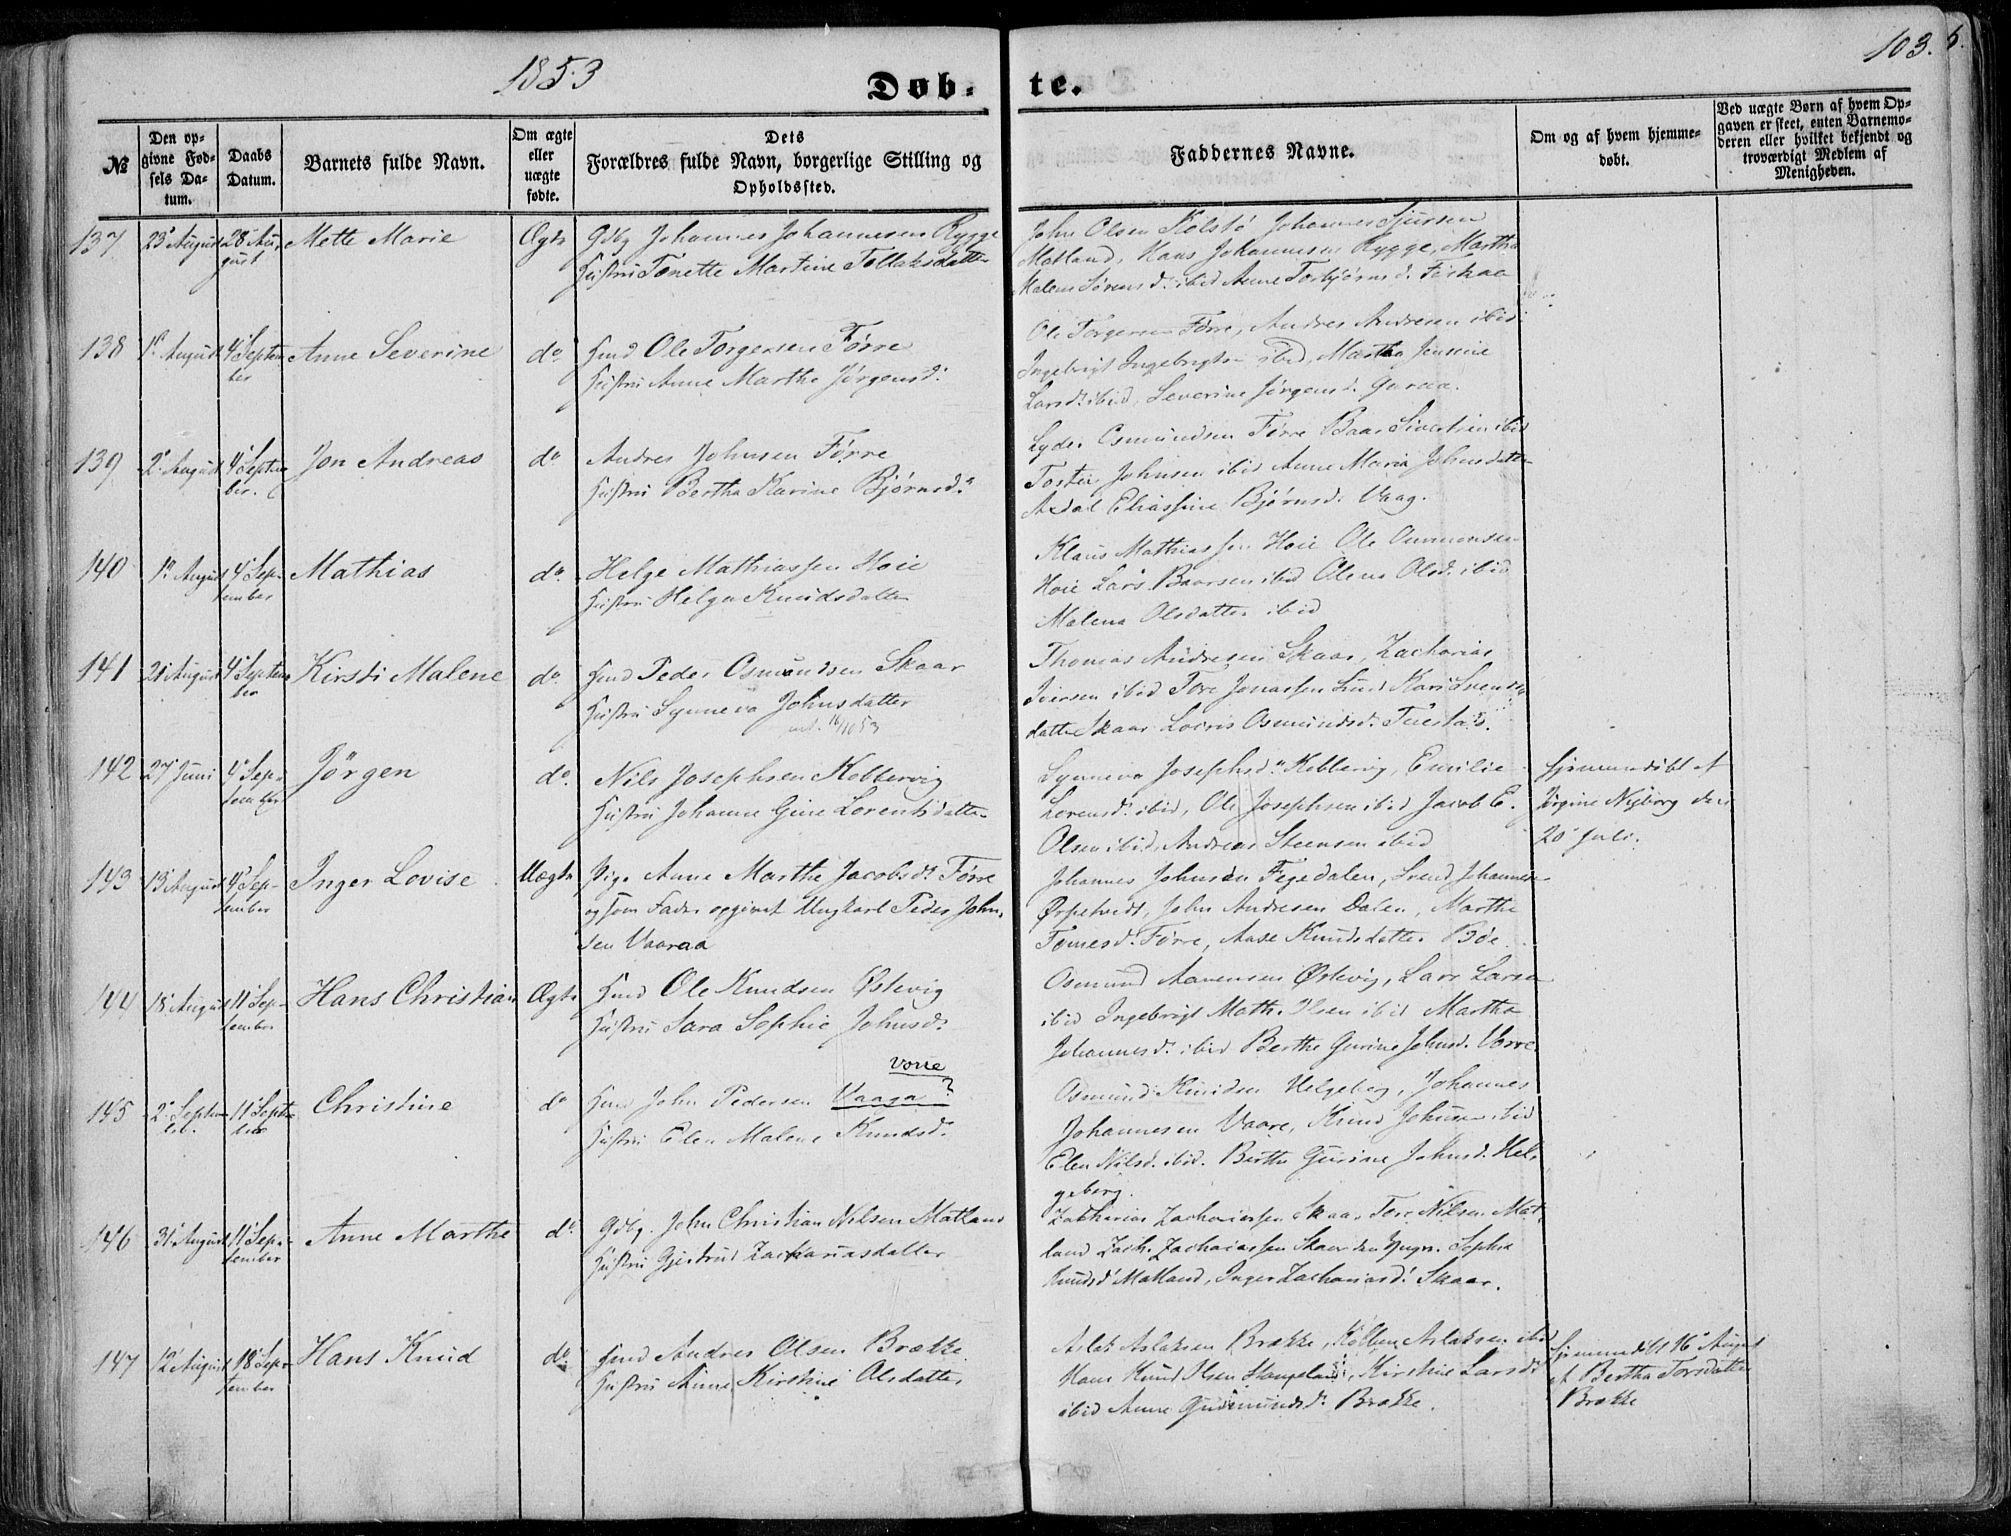 1853
103.
Døb-
te.
№
Den op-
givne Fød-
sels Da-
tum.
Daabs
Datum.
Barnets fulde Navn.
Om ægte
eller
uægte
fødte.
Dets
Forældres fulde Navn, borgerlige Stilling og
Opholdssted.
Faddernes Navne.
Om og af hvem hjemme-
døbt.
Ved uægte Børn af hvem Op-
gaven er skeet, enten Barnemo-
deren eller hvilket bekjendt og
troværdigt Medlem af
Menigheden.
137 23' August 28' Au- Mette Marie Ægte Gdbg Johannes Johannesen Rygge
gust Hustru Tonette Martine Tollaksdatter
John Olsen Kolstø Johannes Sjursen
Matland, Hans Johannesen Rygge, Martha
Malene Sørensd. ibid Anne Torbjørnsd. Fiskaa
138 1' August 4' Septem Anne Severine do Hmd Ole Torgersen Førre
ber Hustru Anne Marthe Jørgensd.
Ole Torgersen Førre, Andres Andresen ibid
Ingebrigt Ingebrigtsen ibid, Martha Jensine
Larsd. ibid, Severine Jørgensd. Garaa.
139 2' August 4' Septem Jon Andreas do Andres Johnsen Førre
ber. Hustru Bertha Karine Bjørnsd.
Lyder Osmundsen Førre Baar Sivertsen ibid
Tosten Johnsen ibid Anne Maria Johnsdatter
Aadal Eliassine Bjørnsd. Vaag.
140 1' August 4' Sep- Mathias do. Helge Mathiassen Hoie
tember Hustru Helga Knudsdatter
Klaus Mathiassen Hoie Ole
Hoie Lars Baarsen ibid Olena Olsd. ibid
Malena Olsdatter ibid
141 21 August 4' Septem Kirsti Malene do. Hmd Peder Osmundsen Skaar
ber Hustru Synneva Johnsdatter
16/10 53
Thomas Andresen Skaar, Zacharias
Iversen ibid Tore Jonassen Lund Kari Svends
datter Skaar Osmundsd.
142 27' Juni 4' Sep- Jörgen do. Nils Josephsen Kobbervig
tember Hustru Johanne Gine Lorentsdatter
Synneva Josephsd. Kobbervig, Emilie
Lorensd. ibid, Ole Josephsen ibid Jacob E.
Olsen ibid, Andreas Steensen ibid
Hjemmedöbt af
Jørgine Nyborg den
20' Juli.
143 13' August 4' Sep- Inger Lovise Uægte Pige Anne Marthe Jacobsd. Førre
tember og som Fader opgivet Ungkarl Peder John-
sen Vaaraa
Johannes Johnsen Fegedalen, Svend Johannesen
Ørpetvedt, John Andresen Dalen, Marthe
Tomesd. Førre, Aase Knudsdatter Böe.
144 18' August 11' Sep- Hans Christian Ægte Hmd Ole Knudsen Østevig
tember Hustru Sara Sophie Johnsd.
Osmund Aanensen Østevig, Lars Larsen
ibid Ingebrigt Math. Olsen ibid Martha
Johannesd. ibid Berthe Gurine Johnsd. Vorre
vorre
145 2' Septem 11' Septem Christine do Hmd John Pedersen Vaaga ?
ber. ber Hustru Elen Malene Knudsd.
Osmund Knudsen Helgeberg, Johannes
Johannesen Vaare, Knud Johnsen ibid
Elen Nilsd. ibid. Birthe Gurine Johnsd. Hel-
geberg.
146 31' August 11' Sep- Anne Marthe do Gdbg. John Christian Nilsen Matland
tember Hustru Gjertrud Zachariasdatter
Zacharias Zachariassen Skaar Tore Nilsen Mat-
land Zach. Zachariassen Skaar den yngre. Sophia
Knudsd. Matland, Inger Zachariasd. Skaar.
147 12' August 18' Sep- Hans Knud do. Hmd Andres Olsen Brække
tember Hustru Anne Kirstine Olsdatter
Aslak Aslaksen Brække, Kolben Aslaksen ibid
Hans Knud Olsen Stangeland, Kirstine Larsd.
ibid Anne Gudmundsd. Brække.
Hjemmedöbt 16' August
af Bertha Torsdatter
Brække